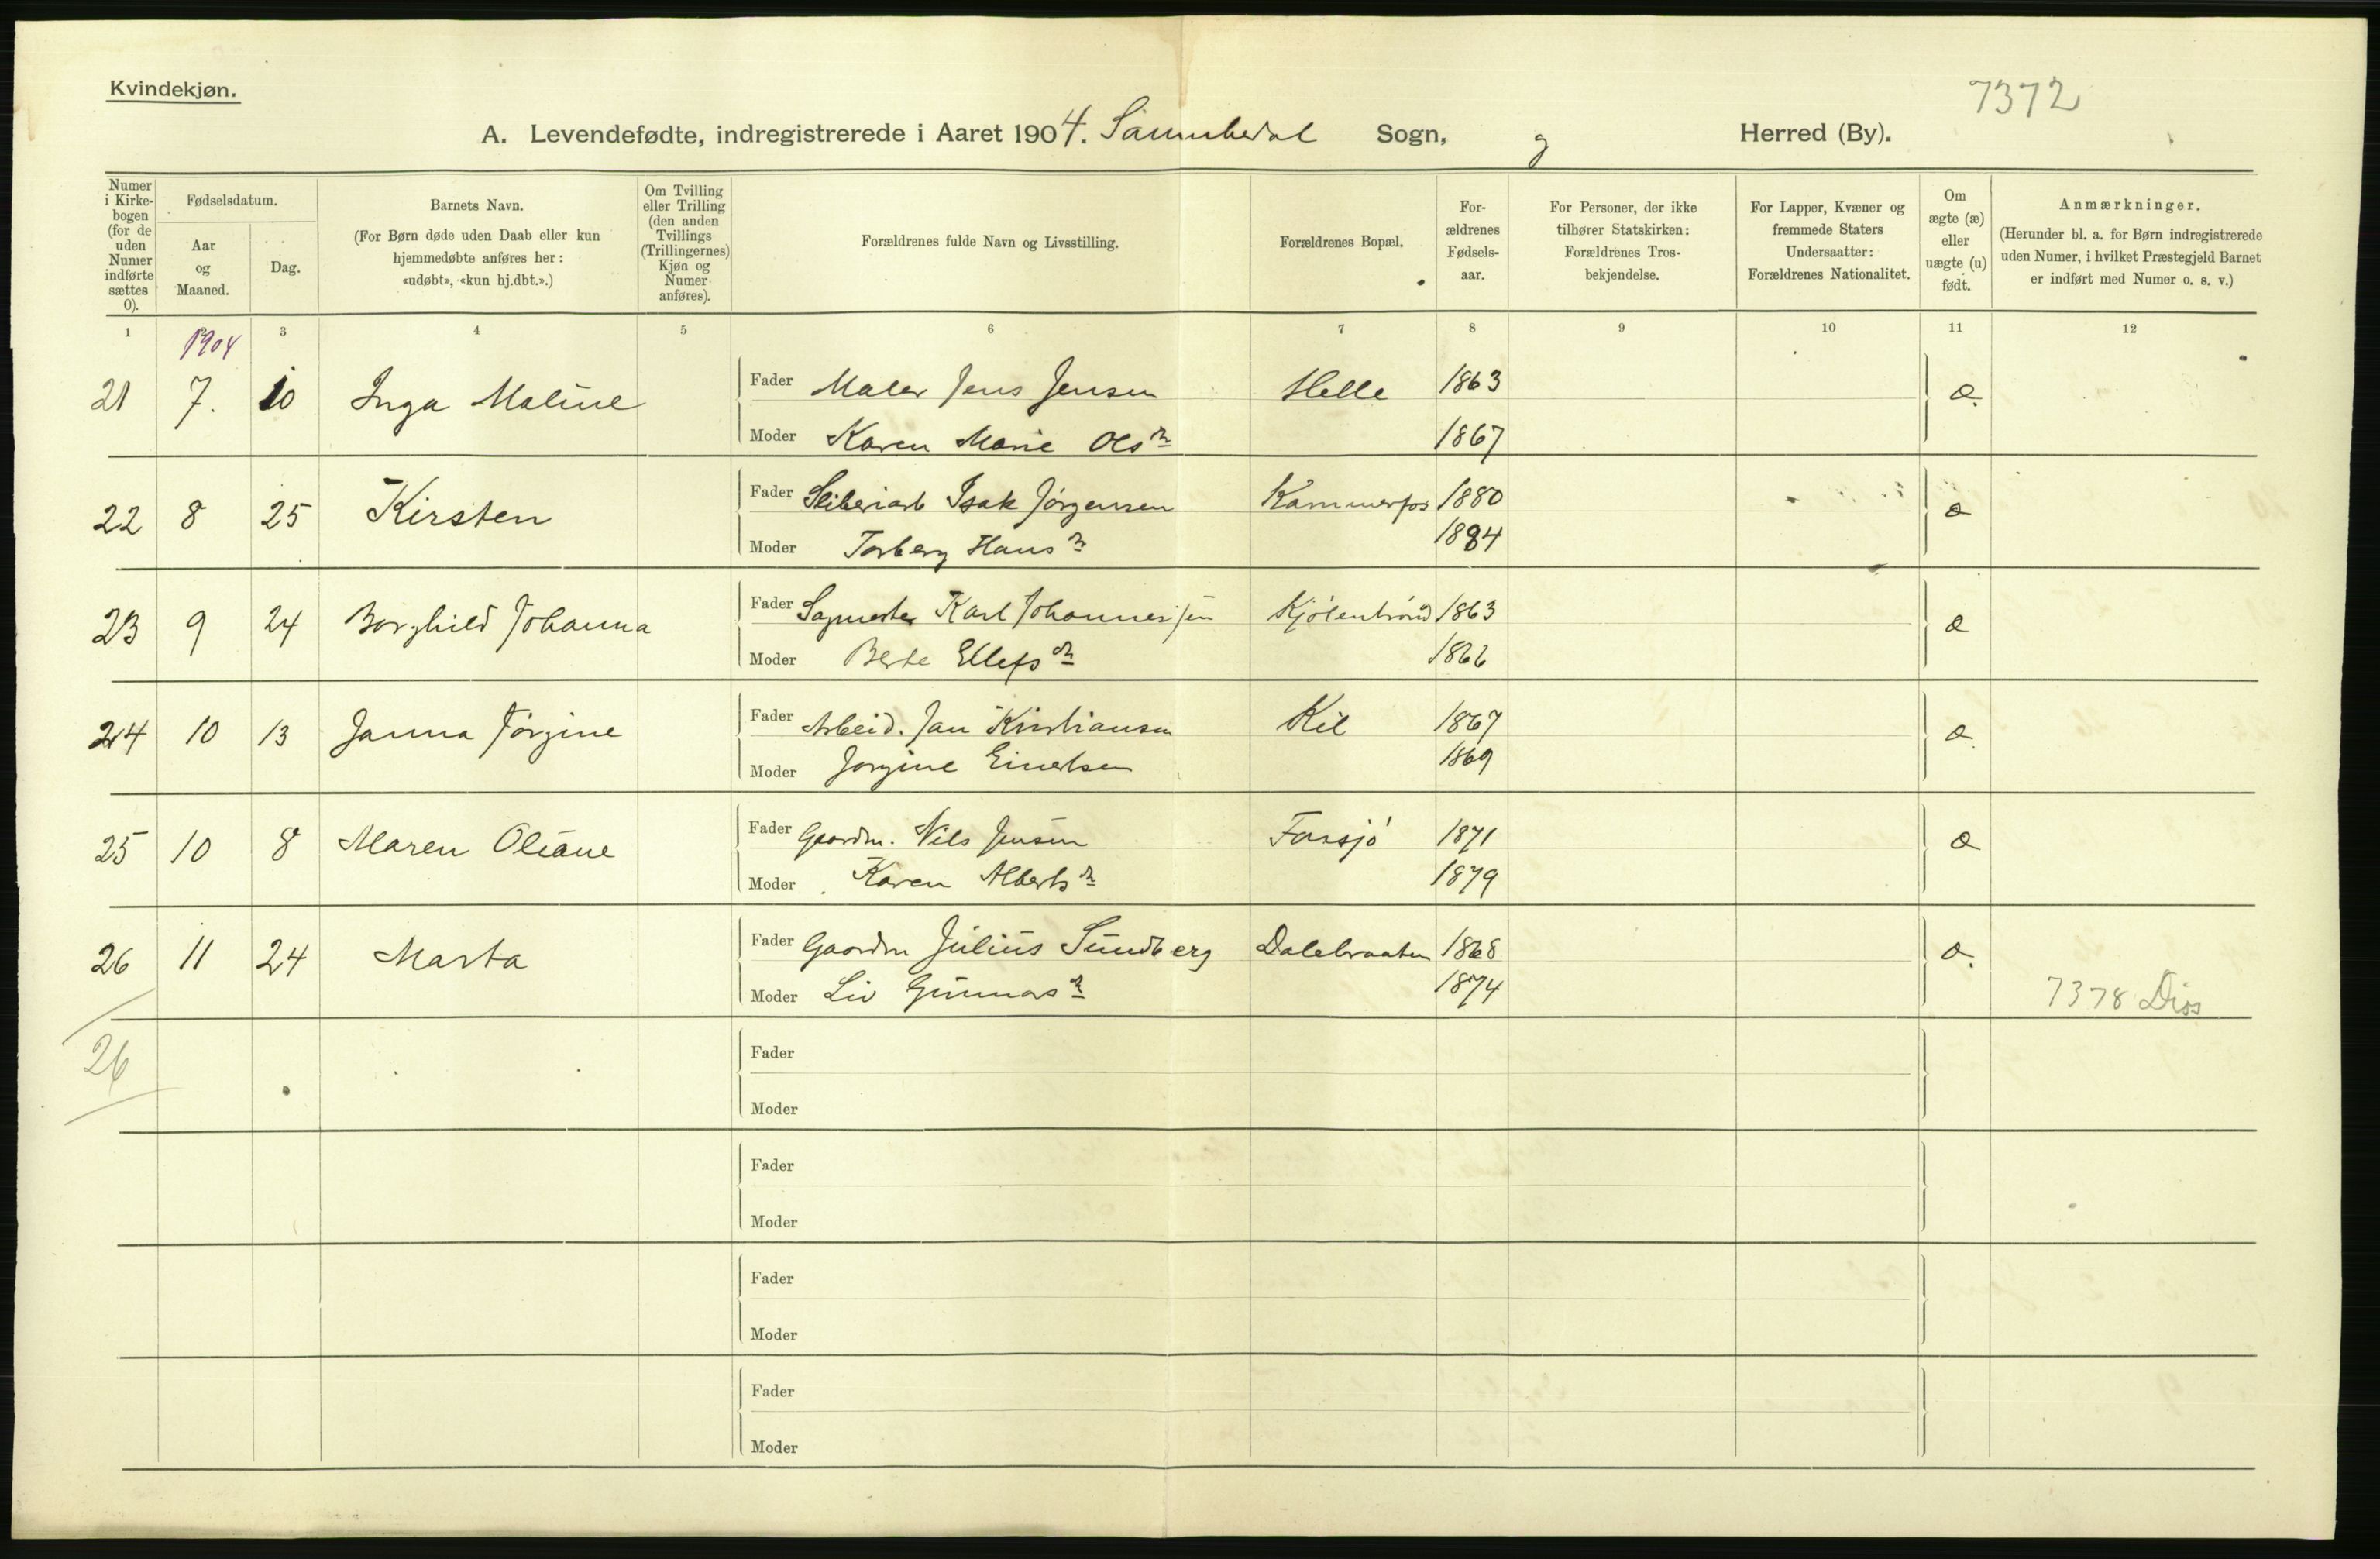 Kvindekjøn.
7372
A. Levendefødte, indregistrerede i Aaret 1904. Sannikedal Sogn, Herred (By).
Numer i Kirkebogen (for de uden Numer indførte sættes 0).
Fødselsdatum.
Aar og Maaned.
Dag.
Barnets Navn.
(For Børn døde uden Daab eller kun hjemmedøbte anføres her: «udøbt», «kun hj.dbt.».)
Om Tvilling eller Trilling (den anden Tvillings (Trillingernes) Kjøn og Numer anføres).
Forældrenes fulde Navn og Livsstilling.
Forældrenes Bopæl.
Forældrenes Fødselsaar.
For Personer, der ikke tilhører Statskirken: Forældrenes Trosbekjendelse.
For Lapper, Kvæner og fremmede Staters Undersaatter: Forældrenes Nationalitet.
Om ægte (æ) eller uægte (u) født.
Anmærkninger.
(Herunder bl. a. for Børn indregistrerede uden Numer, i hvilket Præstegjeld Barnet er indført med Numer o. s. v.)
1 3 4 5 6 7 8 9 10 11 12
1904
21 7. 10 Inga Maline Fader Maler Jens Jensen Helle 1863 æ.
Moder Karen Marie Olsdr 1867
22 8 25 Kirsten Fader Sliberiarb Isak Jörgensen Kammerfos 1880 æ
Moder Torberg Hansdr 1884
23 9 24 Borghild Johanna Fader Sagmester Karl Johannessen Kjölenbrönd 1863 æ
Moder Berte Ellefsdr 1866
24 10 13 Janna Jörgine Fader Arbeid. Jan Kristiansen Kil 1867 æ
Moder Jorgine Einertsen 1869
25 10 8 Maren Oliane Fader Gaardm. Nils Jensen Farsjö 1871 æ
Moder Karen Albertsdr 1879
26 11 24 Marta Fader Gaardm Julius Sundberg Dalebraaten 1868 æ.
Moder Liv Gunnarsdr 1874
7378 Diss
26
Fader
Moder
Fader
Moder
Fader
Moder
Fader
Moder